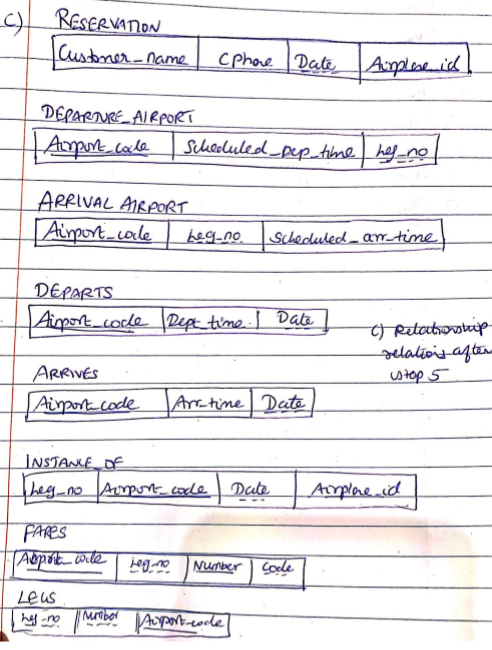 c) RESERVATION
Customer_name CPhone Date Airplane_id
DEPARTURE_AIRPORT
Airport_code Scheduled_Dep_time Leg_no
ARRIVAL AIRPORT
Airport_code Leg_no. Scheduled_arr_time
DEPARTS
Airport_code Dept_time. Date
c) Relationship
relations after
step 5
ARRIVES
Airport_code Arr_time Date
INSTANCE_OF
Leg_no Airport_code Date Airplane_id
FARES
Airport_code Leg_no Number Code
LEGS
Leg_no Number Airport_code